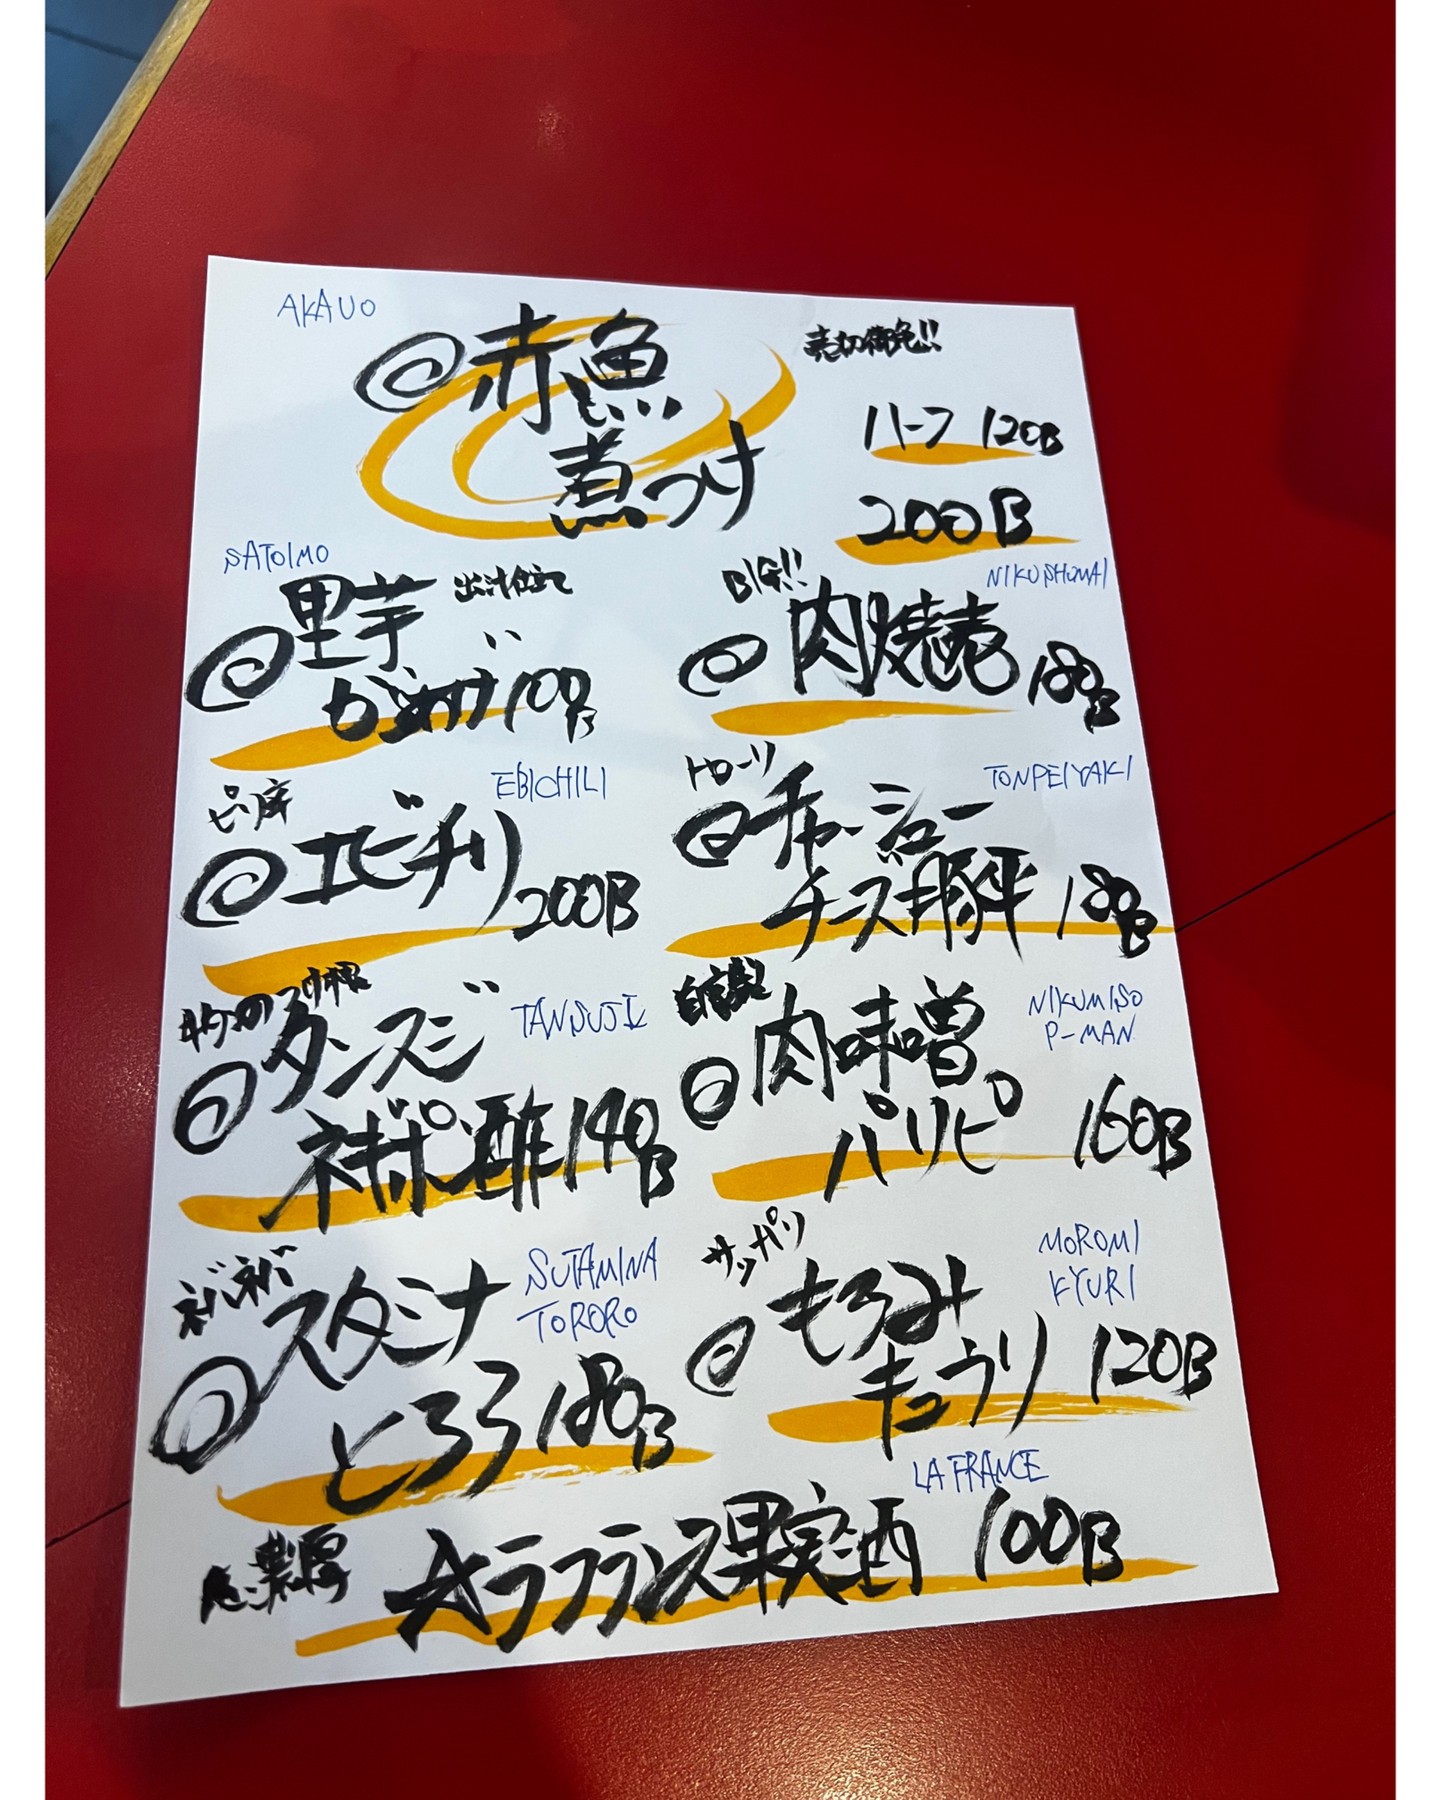 AKAUO
◎赤魚
煮つけ
売切御免!!
ハーフ 120B
200B
SATOIMO
◎里芋
出汁仕立て
から揚げ 100B
BIG!!
NIKUSHUMAI
◎肉焼売 180B
EBICHILI
ピリ辛
◎エビチリ
200B
トローリ
TONPEIYAKI
◎チャーシュー
チーズ豚平 180B
タンスジ
TANSUJI
ネギポン酢 140B
自家製
NIKUMISO
P-MAN
◎肉味噌
パリピ 160B
ネバネバ
SUTAMINA
TORORO
◎スタミナ
とろろ 180B
サッパリ
MOROMI
KYURI
◎もろみ
キュウリ 120B
LA FRANCE
濃厚
☆ラフランス果実酒 100B